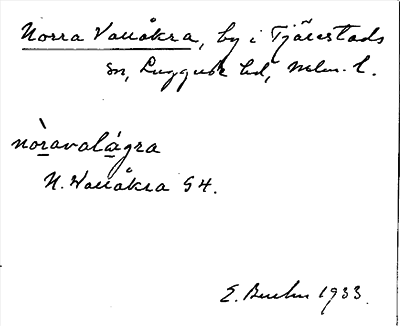 Norra Vallåkra, by i Tjärestads
sn, Luggude hd, Mlm. l.
nòravalágra
N. Wallåkra GH.
E. Buchn 1933.